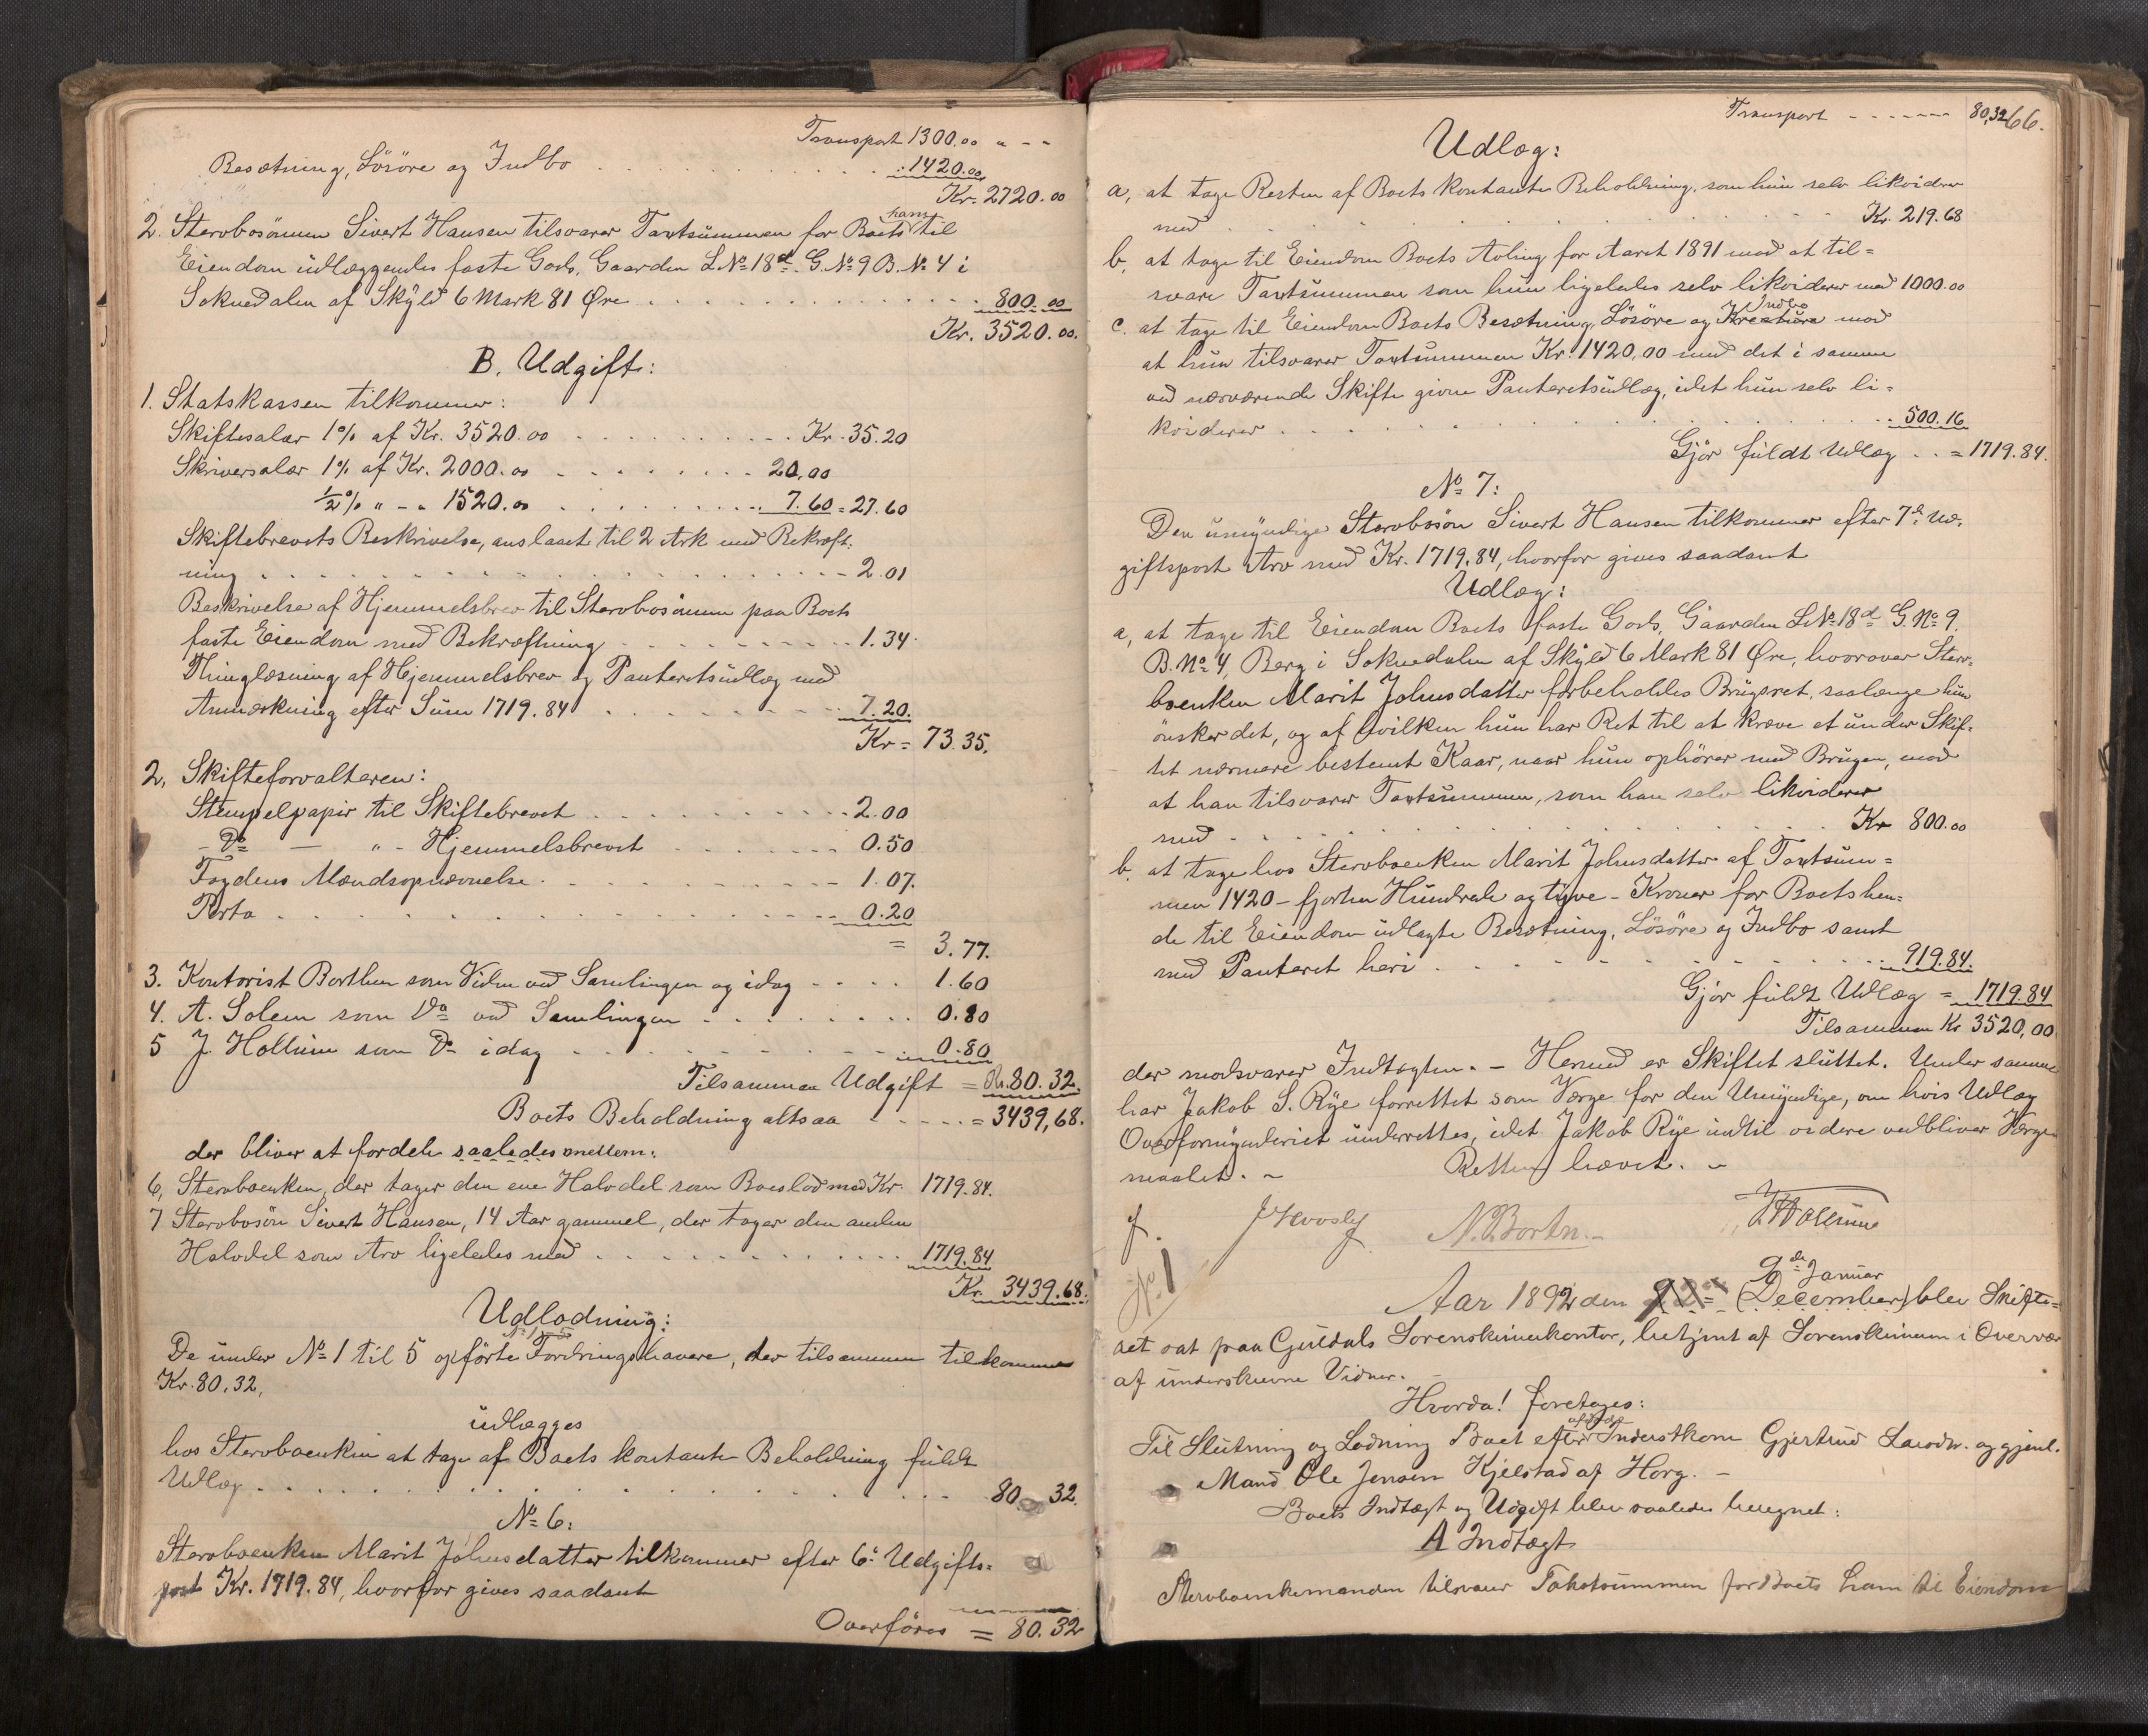 Transport 1300.00 " - -
Besætning, Løsøre og Indbo . . . 1420.00
Kr. 2720.00
2. Stervbosønnen Sivert Hansen tilsvarer Taxtsummen for Boets ham til
Eiendom udlæggendes faste Gods, Gaarden L.No 18d. G.No 9 B.No 4 i
Soknedalen af Skyld 6 Mark 81 Øre . . . 800.00
Kr. 3520.00.
B. Udgift:
1. Statskassen tilkommer:
Skiftesalær 1% af Kr. 3520.00 . . . Kr. 35.20
Skriversalær 1% af Kr. 2000.00 . . . 20,00
½% " - " 1520.00 . . . 7.60 = 27.60
Skiftebrevets Beskrivelse, anslaaet til 2 Ark med Bekræft-
ning . . . 2.01
Beskrivelse af Hjemmelsbrev til Stervbosønnen paa Boets
faste Eiendom med Bekræftning . . . 1.34.
Thinglæsning af Hjemmelsbrev og Panteretsudlæg med
Anmærkning efter Sum 1719.84 . . . 7.20.
Kr = 73.35.
2. Skifteforvalteren:
Stempelpapir til Skiftebrevet . . . 2.00
- Do - " - Hjemmelsbrevet . . . 0.50
Fogdens Mændsopnævnelse . . . 1.07.
Porto . . . 0.20
= 3.77.
3. Kontorist Borthen som Vidne ved Samlingen og idag . . . 1.60
4. A. Solem som Do ved Samlingen . . . 0.80
5 J. Hollum som Do idag . . . 0.80
Tilsammen Udgift = Kr. 80.32.
Boets Beholdning altsaa . . . = 3439,68.
der bliver at fordele saaledes mellem:
6, Stervboenken, der tager den ene Halvdel som Boeslod med Kr. 1719.84.
7 Stervbosøn Sivert Hansen, 14 Aar gammel, der tager den anden
Halvdel som Arv ligeledes med . . . 1719.84
Kr. 3439.68.
Udlodning:
De under No 1 til 5 opførte Fordringshavere, der tilsammen tilkommer
Kr. 80.32,
udlægges
hos Stervboenken at tage af Boets kontante Beholdning fuldt
Udlæg . . . 80. 32.
No 6:
Stervboenken Marit Johnsdatter tilkommer efter 6te Udgifts-
post Kr. 1719.84, hvorfor gives saadant
Overføres = 80.32
Transport - - - - - - 80,32
66.
Udlæg:
a, at tage Resten af Boets kontante Beholdning, som hun selv likviderer
med . . . Kr. 219.68
b, at tage til Eiendom Boets Avling for Aaret 1891 mod at til-
svare Taxtsummen som hun ligeledes selv likviderer med 1000.00
c. at tage til Eiendom Boets Besætning, Løsøre og Kreature Indbo mod
at hun tilsvarer Taxtsummen Kr. 1420,00 med det i samme
ved nærværende Skifte givne Panteretsudlæg, idet hun selv li-
kviderer . . . 500.16
Gjør fuldt Udlæg . . = 1719.84.
No 7:
Den umyndige Stervbosøn Sivert Hansen tilkommer efter 7de Ud-
giftspost Arv med Kr. 1719.84, hvorfor gives saadant
Udlæg:
a, at tage til Eiendom Boets faste Gods, Gaarden L.No 18d G.No 9.
B.No 4, Berg i Soknedalen af Skyld 6 Mark 81 Øre, hvorover Sterv-
boenken Marit Johnsdatter forbeholdes Brugsret, saalænge hun
ønsker det, og af hvilken hun har Ret til at kræve et under Skif-
tet nærmere bestemt Kaar, naar hun ophører med Brugen, mod
at han tilsvarer Taxtsummen, som han selv likviderer
med . . . Kr 800.00
b, at tage hos Stervboenken Marit Johnsdatter af Taxtsum-
men 1420 - fjorten Hundrede og tyve - Kroner for Boets hen-
de til Eiendom udlagte Besætning, Løsøre og Indbo samt
med Panteret heri . . . 919.84.
Gjør fuldt Udlæg = 1719.84
Tilsammen Kr 3520,00.
der modsvarer Indtægten. - Hermed er Skiftet sluttet. Under samme
har Jakob S. Rye forrettet som Værge for den Umyndige, om hvis Udlæg
Overformynderiet underrettes, idet Jakob Rye indtil videre vedbliver Værge-
maalet. - Retten hævet. -
N. Borthn. -
No 1
9de Januar
Aar 1892 den (December) blev Skifte-
ret sat paa Guldals Sorenskriverkontor, betjent af Sorenskriveren i Overvær
af underskrevne Vidner. -
Hvorda! foretoges:
Til Slutning og Lodning Boet efter afdøde Inderstkone Gjertrud Larsdr. og gjenl.
Mand Ole Jensen Kjelstad af Horg. -
Boets Indtægt og Udgift blev saaledes beregnet:
A Indtægt
Stervboenkemanden tilsvarer Takstsummen for Boets ham til Eiendom